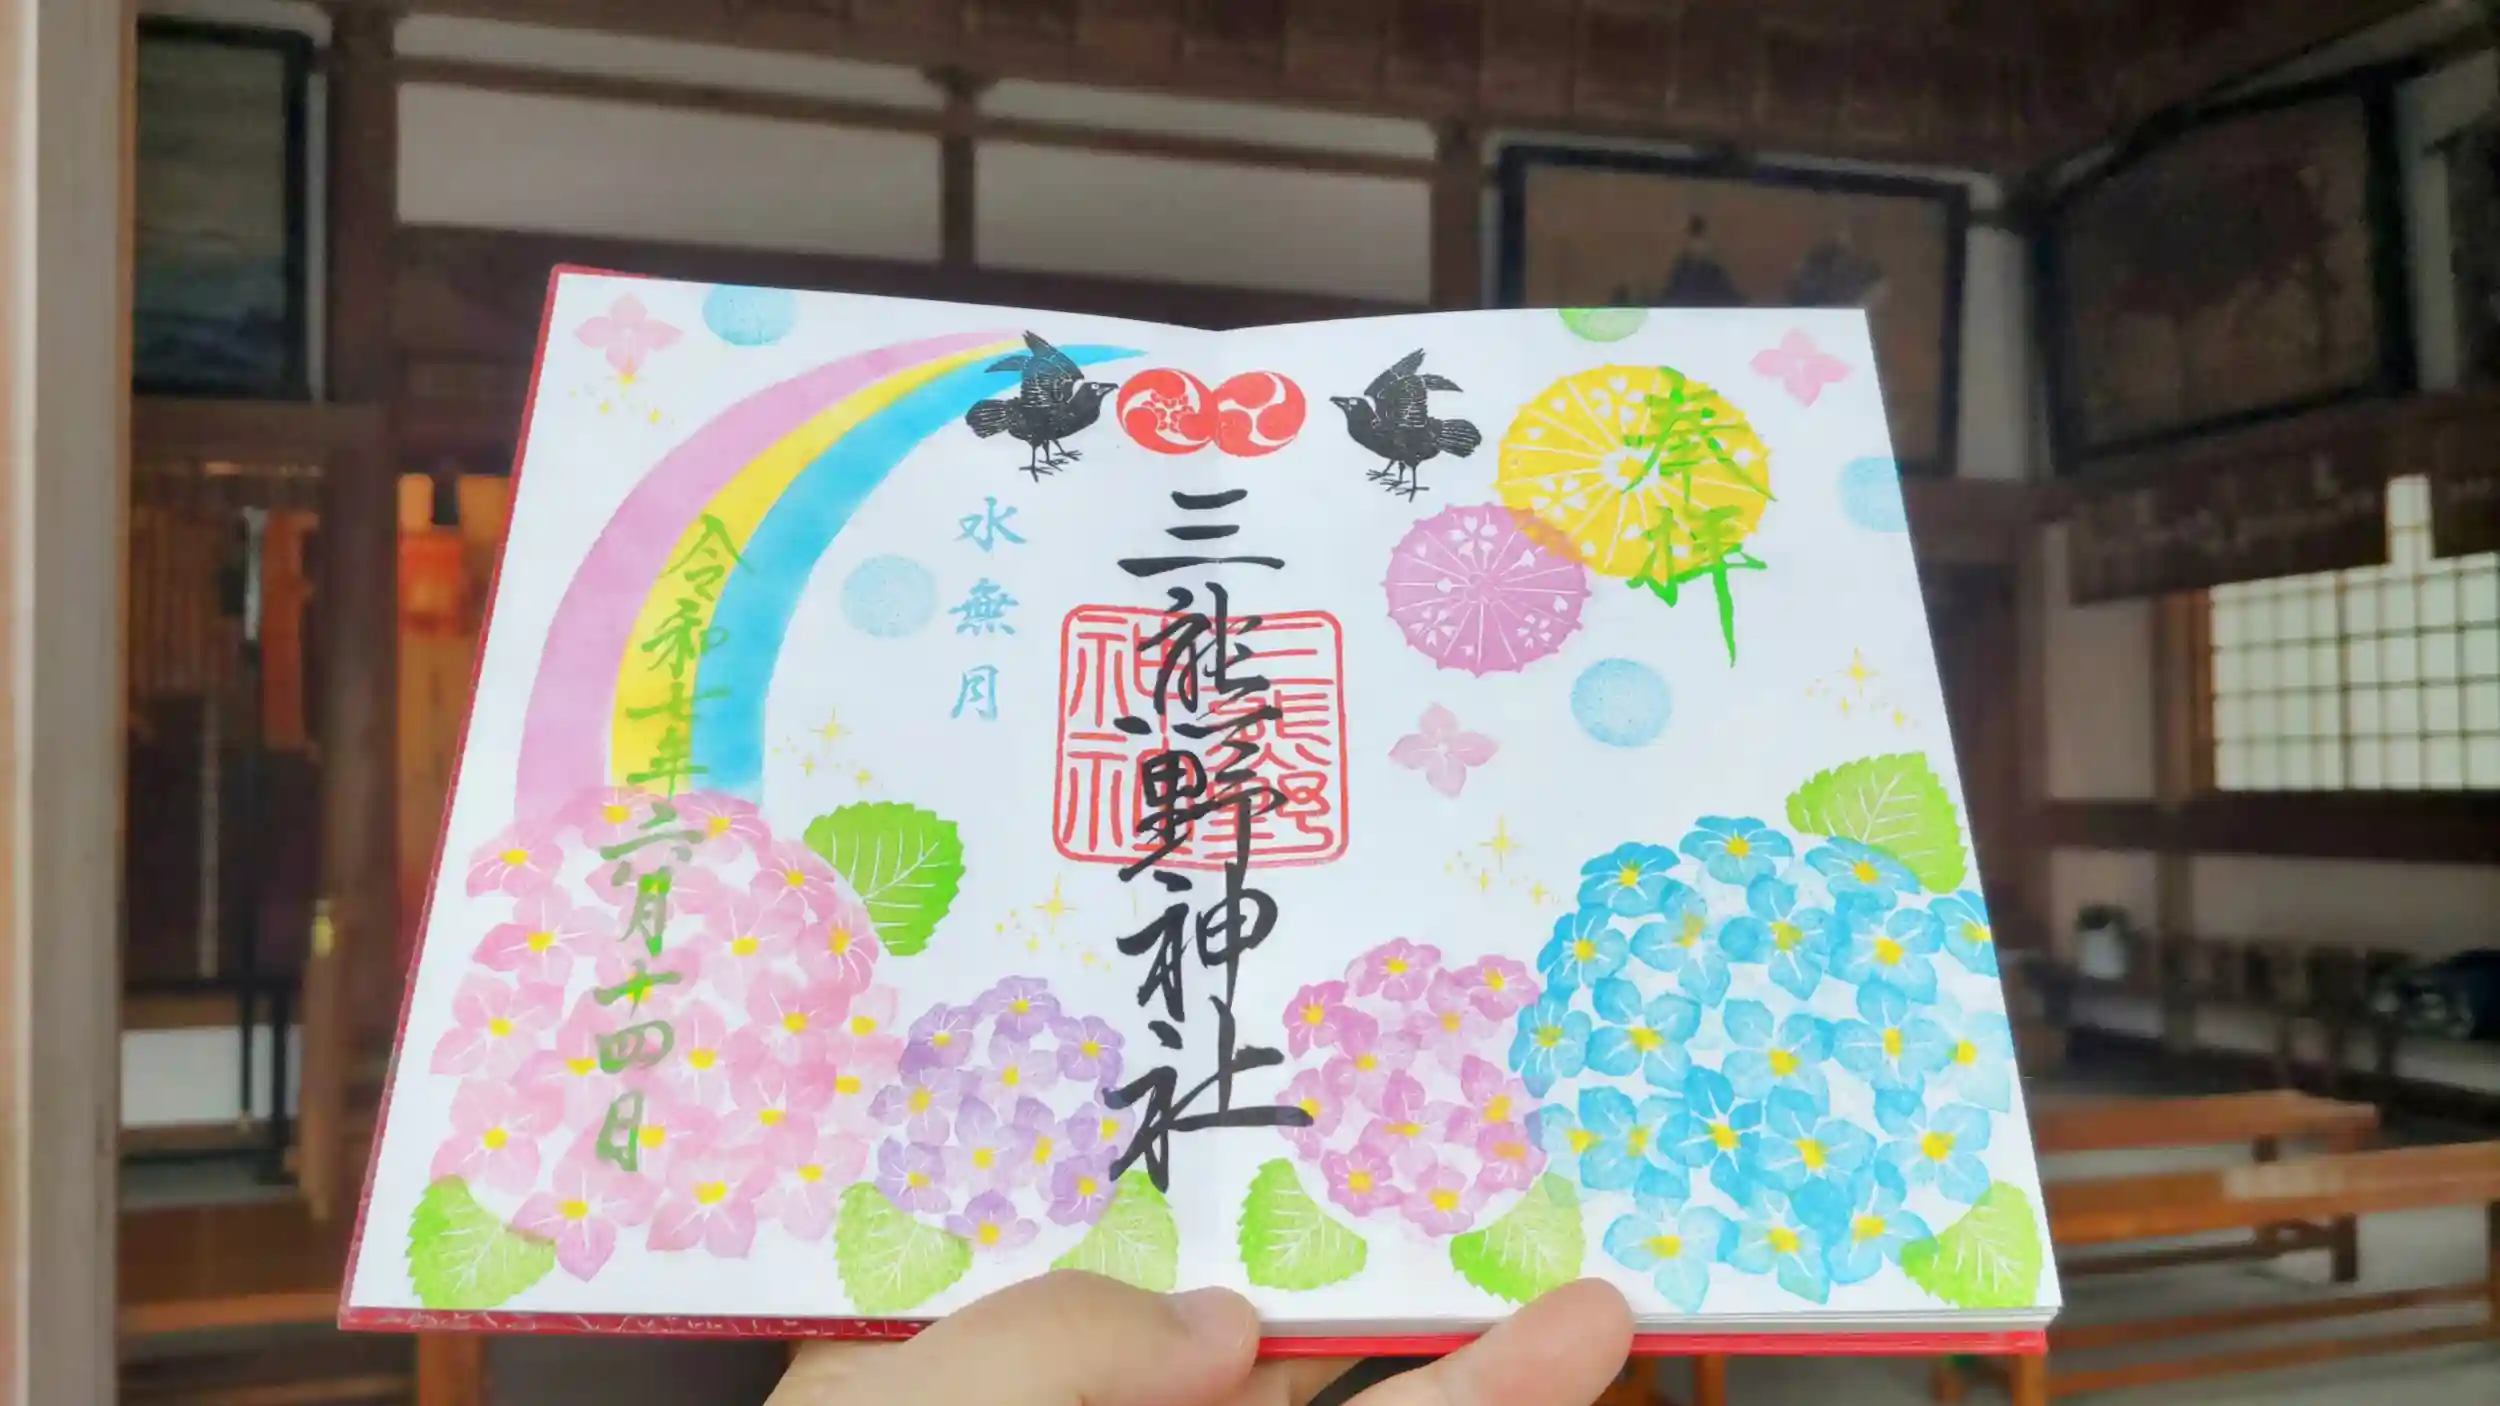 奉拝
三熊野神社
三熊野神社
水無月
令和七年六月十四日